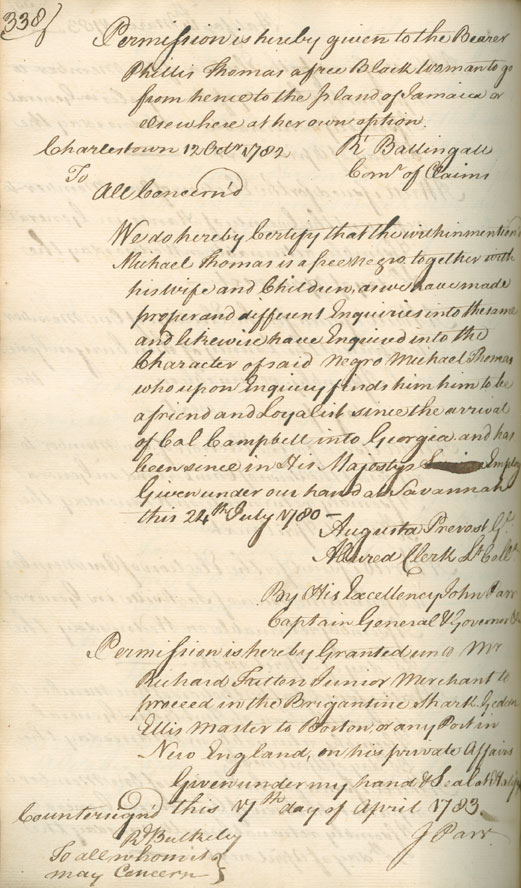 338
Permission is hereby given to the Bearer
Phillis Thomas a free Black Woman to go
from hence to the Island of Jamaica or
elsewhere at her own option.
Charlestown 12 Octr 1782 Rt Ballingall
Comr of Claims
To
All Concern'd
We do hereby Certify that the within mention'd
Michael Thomas is a free negro, together with
his wife and Children, as we have made
proper and different Enquiries into the same
and likewise have Enquired into the
Character of said Negro Michael Thomas
who upon Enquiry finds him him to be
a friend and Loyalist since the arrival
of Col Campbell into Georgia and has
been since in His Majestys Employ
Given under our hand at Savannah
this 24th July 1780 —
Augusta Prevost
Allured Clerk Lt Coll
By His Excellency John Parr
Captain General & Governor &
Permission is hereby Granted unto Mr
Richard Fatton Junior Merchant to
proceed in the Brigantine Shark,
Ellis Master to Boston, or any Port in
New England, on his private Affairs
Given under my hand & Seal at
this 17th day of April 1783.
Countersign'd J Parr.
Rd Bulkeley
To all whom it
may Concern